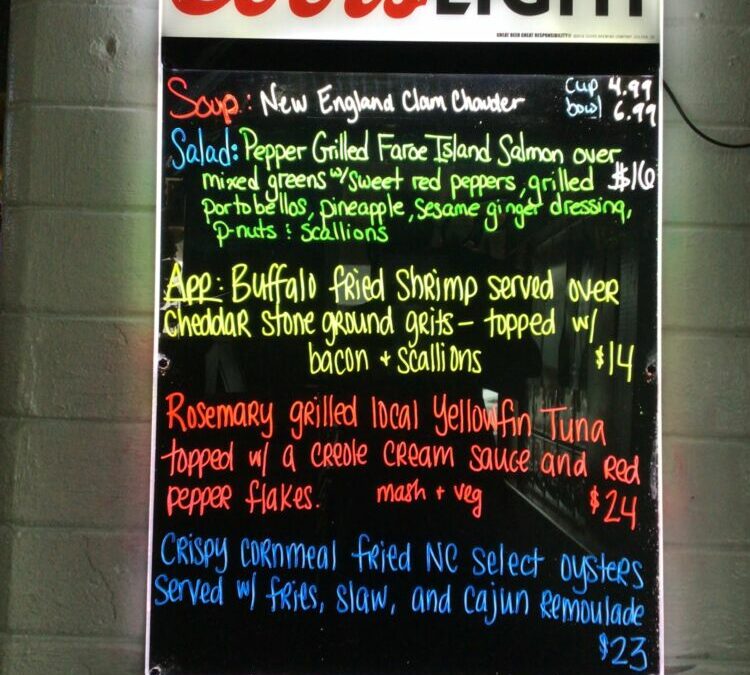 Coors LIGHT
GREAT BEER GREAT RESPONSIBILITY®
Soup: New England Clam Chowder cup 4.99
bowl 6.99
Salad: Pepper Grilled Faroe Island Salmon over
mixed greens w/sweet red peppers, grilled $16
portobellos, pineapple, sesame ginger dressing,
p-nuts & scallions
App: Buffalo fried Shrimp served over
cheddar stone ground grits - topped w/
bacon + scallions $14
Rosemary grilled local Yellowfin Tuna
topped w/ a creole cream sauce and red
pepper flakes. mash + veg $24
Crispy cornmeal fried NC select oysters
served w/ fries, slaw, and cajun remoulade
$23